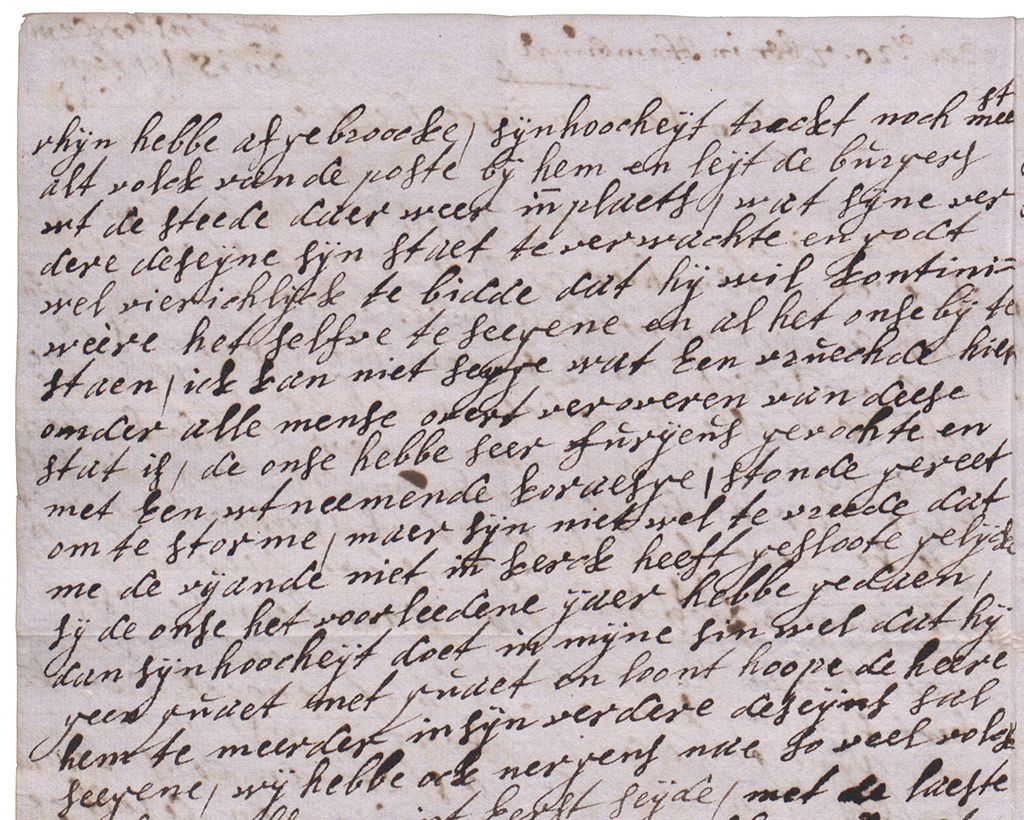 st
rhijn hebbe afgebroocke, sijn hoocheijt treckt noch mee
alt volck vande poste bij hem en leijt de burgers
wt de steede daer weer in plaets, wat sijne ver
dere deseijne sijn staet te verwachte en godt
wel vierichlijck te bidde dat hij wil kontini=
weere het selfve te seegene en al het onse bij te
staen, ick kan niet segge wat Een vruechde hier
onder alle mense overt veroveren van deese
stat is, de onse hebbe seer furijeus gevochte en
met Een wtneemende koraesge, stonde gereet
om te storme, maer sijn niet wel te vreede dat
me de vijande niet in kerck heeft gesloote gelijck
sij de onse het voorleedene ijaer hebbe gedaen,
dan sijn hoocheijt doet in mijne sin wel dat hij
geen quaet met quaet en loont hoope de heere
hem te meerder in sijn verdere deseijns sal
seegene, wij hebbe ock nergens nae so veel volck
Eerst seijde, met de laeste